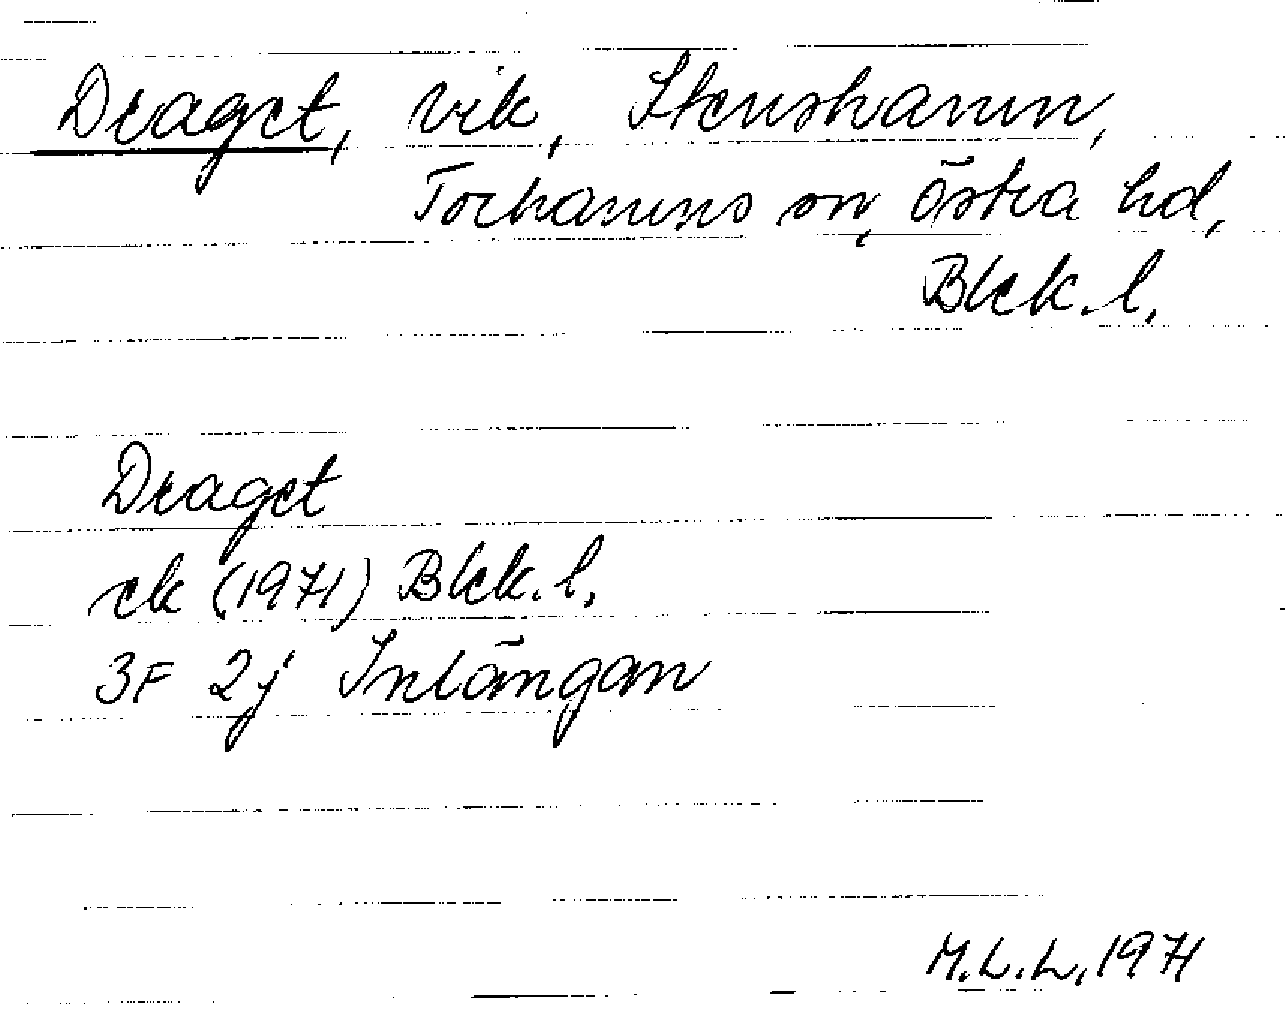 Draget, vik, Stenshamn,
Torhamns sn, Östra hd,
Blek. l.
Draget
ek (1971) Blek. l.
3F 2j Inlängan
M.L.L. 1971